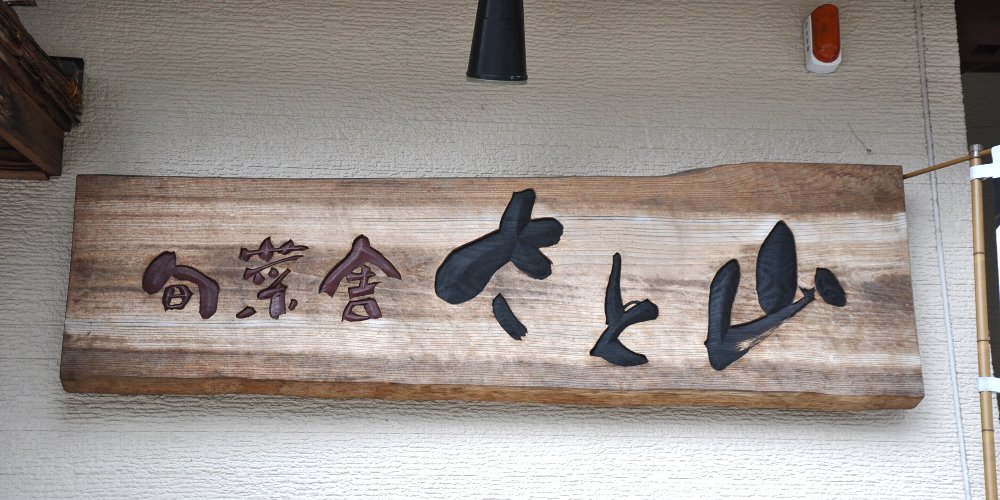 旬菜舎 さと山